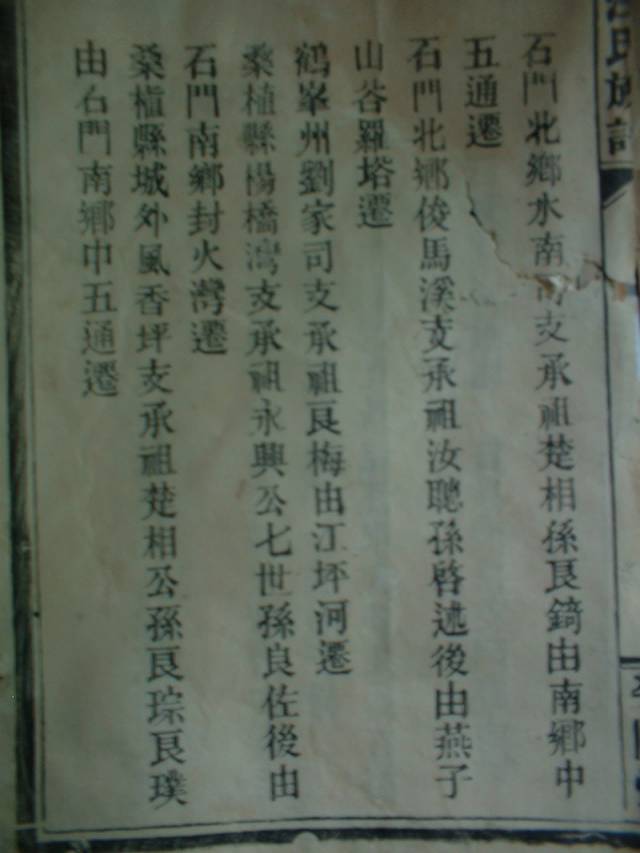 氏族譜
石門北鄉水南灣支承祖楚相孫良錡由南鄉中
五通遷
石門北鄉俊馬溪支承祖汝聰孫啓述後由燕子
山谷羅塔遷
鶴峯州劉家司支承祖良梅由江坪河遷
桑植縣楊橋灣支承祖永興公七世孫良佐後由
石門南鄉封火灣遷
桑植縣城外風香坪支承祖楚相公孫良琮良璞
由石門南鄉中五通遷